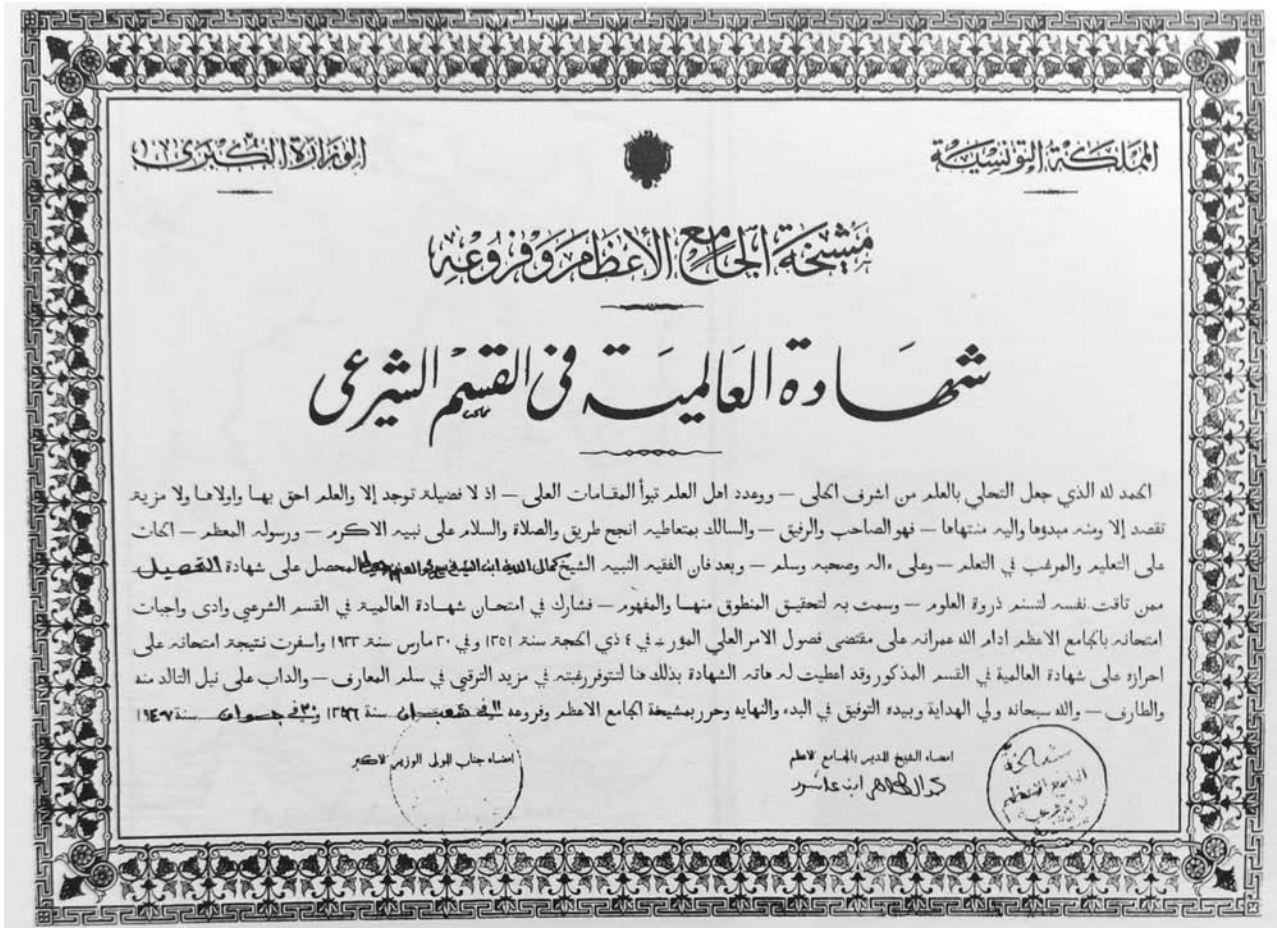 المملكة التونسية
الوزارة الكبرى
مشيخة الجامع الأعظم وفروعه
شهادة العالمية في القسم الشرعي
الحمد لله الذي جعل التحلي بالعلم من اشرف الحلى — ووعد اهل العلم تبوأ المقامات العلى — اذ لا فضيلة توجد إلا والعلم احق بها واولاها ولا مزية
تقصد إلا ومنه مبدؤها واليه منتهاها — فهو الصاحب والرفيق — والسالك بمتعاطيه انجح طريق والصلاة والسلام على نبيه الاكرم — ورسوله المعظم — الحاث
على التعليم والمرغب في التعلم — وعلى ءاله وصحبه وسلم — وبعد فان الفقيه النبيه الشيخ كمال الدين ابن الشيخ المحصل على شهادة التحصيل
ممن تاقت نفسه لتسنم ذروة العلوم — وسمت به لتحقيق المنطوق منها والمفهوم — فشارك في امتحان شهادة العالمية في القسم الشرعي وادى واجبات
امتحانه بالجامع الاعظم ادام الله عمرانه على مقتضى فصول الامر العلي المؤرخ في ٤ ذي الحجة سنة ١٣٥١ وفي ٣٠ مارس سنة ١٩٣٣ واسفرت نتيجة امتحانه على
احرازه على شهادة العالمية في القسم المذكور وقد اعطيت له هاته الشهادة بذلك هنا لتتوفر رغبته في مزيد الترقي في سلم المعارف — والداب على نيل التالد منه
والطارف — والله سبحانه ولي الهداية وبيده التوفيق في البدء والنهاية وحرر بمشيخة الجامع الاعظم وفروعه في ١١ شعبان سنة ١٣٦٦ وفي ٣٠ جوان سنة ١٩٤٧
امضاء الشيخ المدير بالجامع الاعظم
محمد الطاهر ابن عاشور
امضاء جناب المولى الوزير الاكبر
مشيخة
الجامع الاعظم